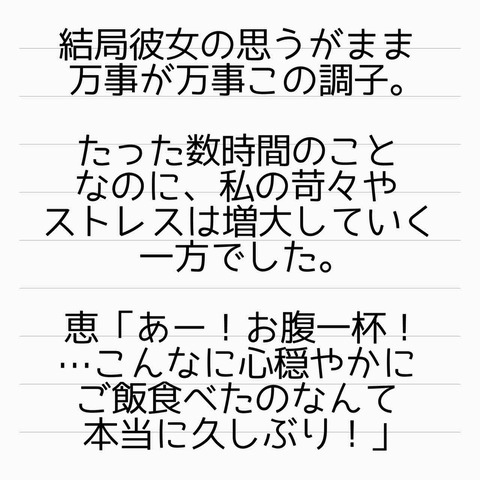 結局彼女の思うがまま
万事が万事この調子。
たった数時間のこと
なのに、私の苛々や
ストレスは増大していく
一方でした。
恵「あー！お腹一杯！
…こんなに心穏やかに
ご飯食べたのなんて
本当に久しぶり！」